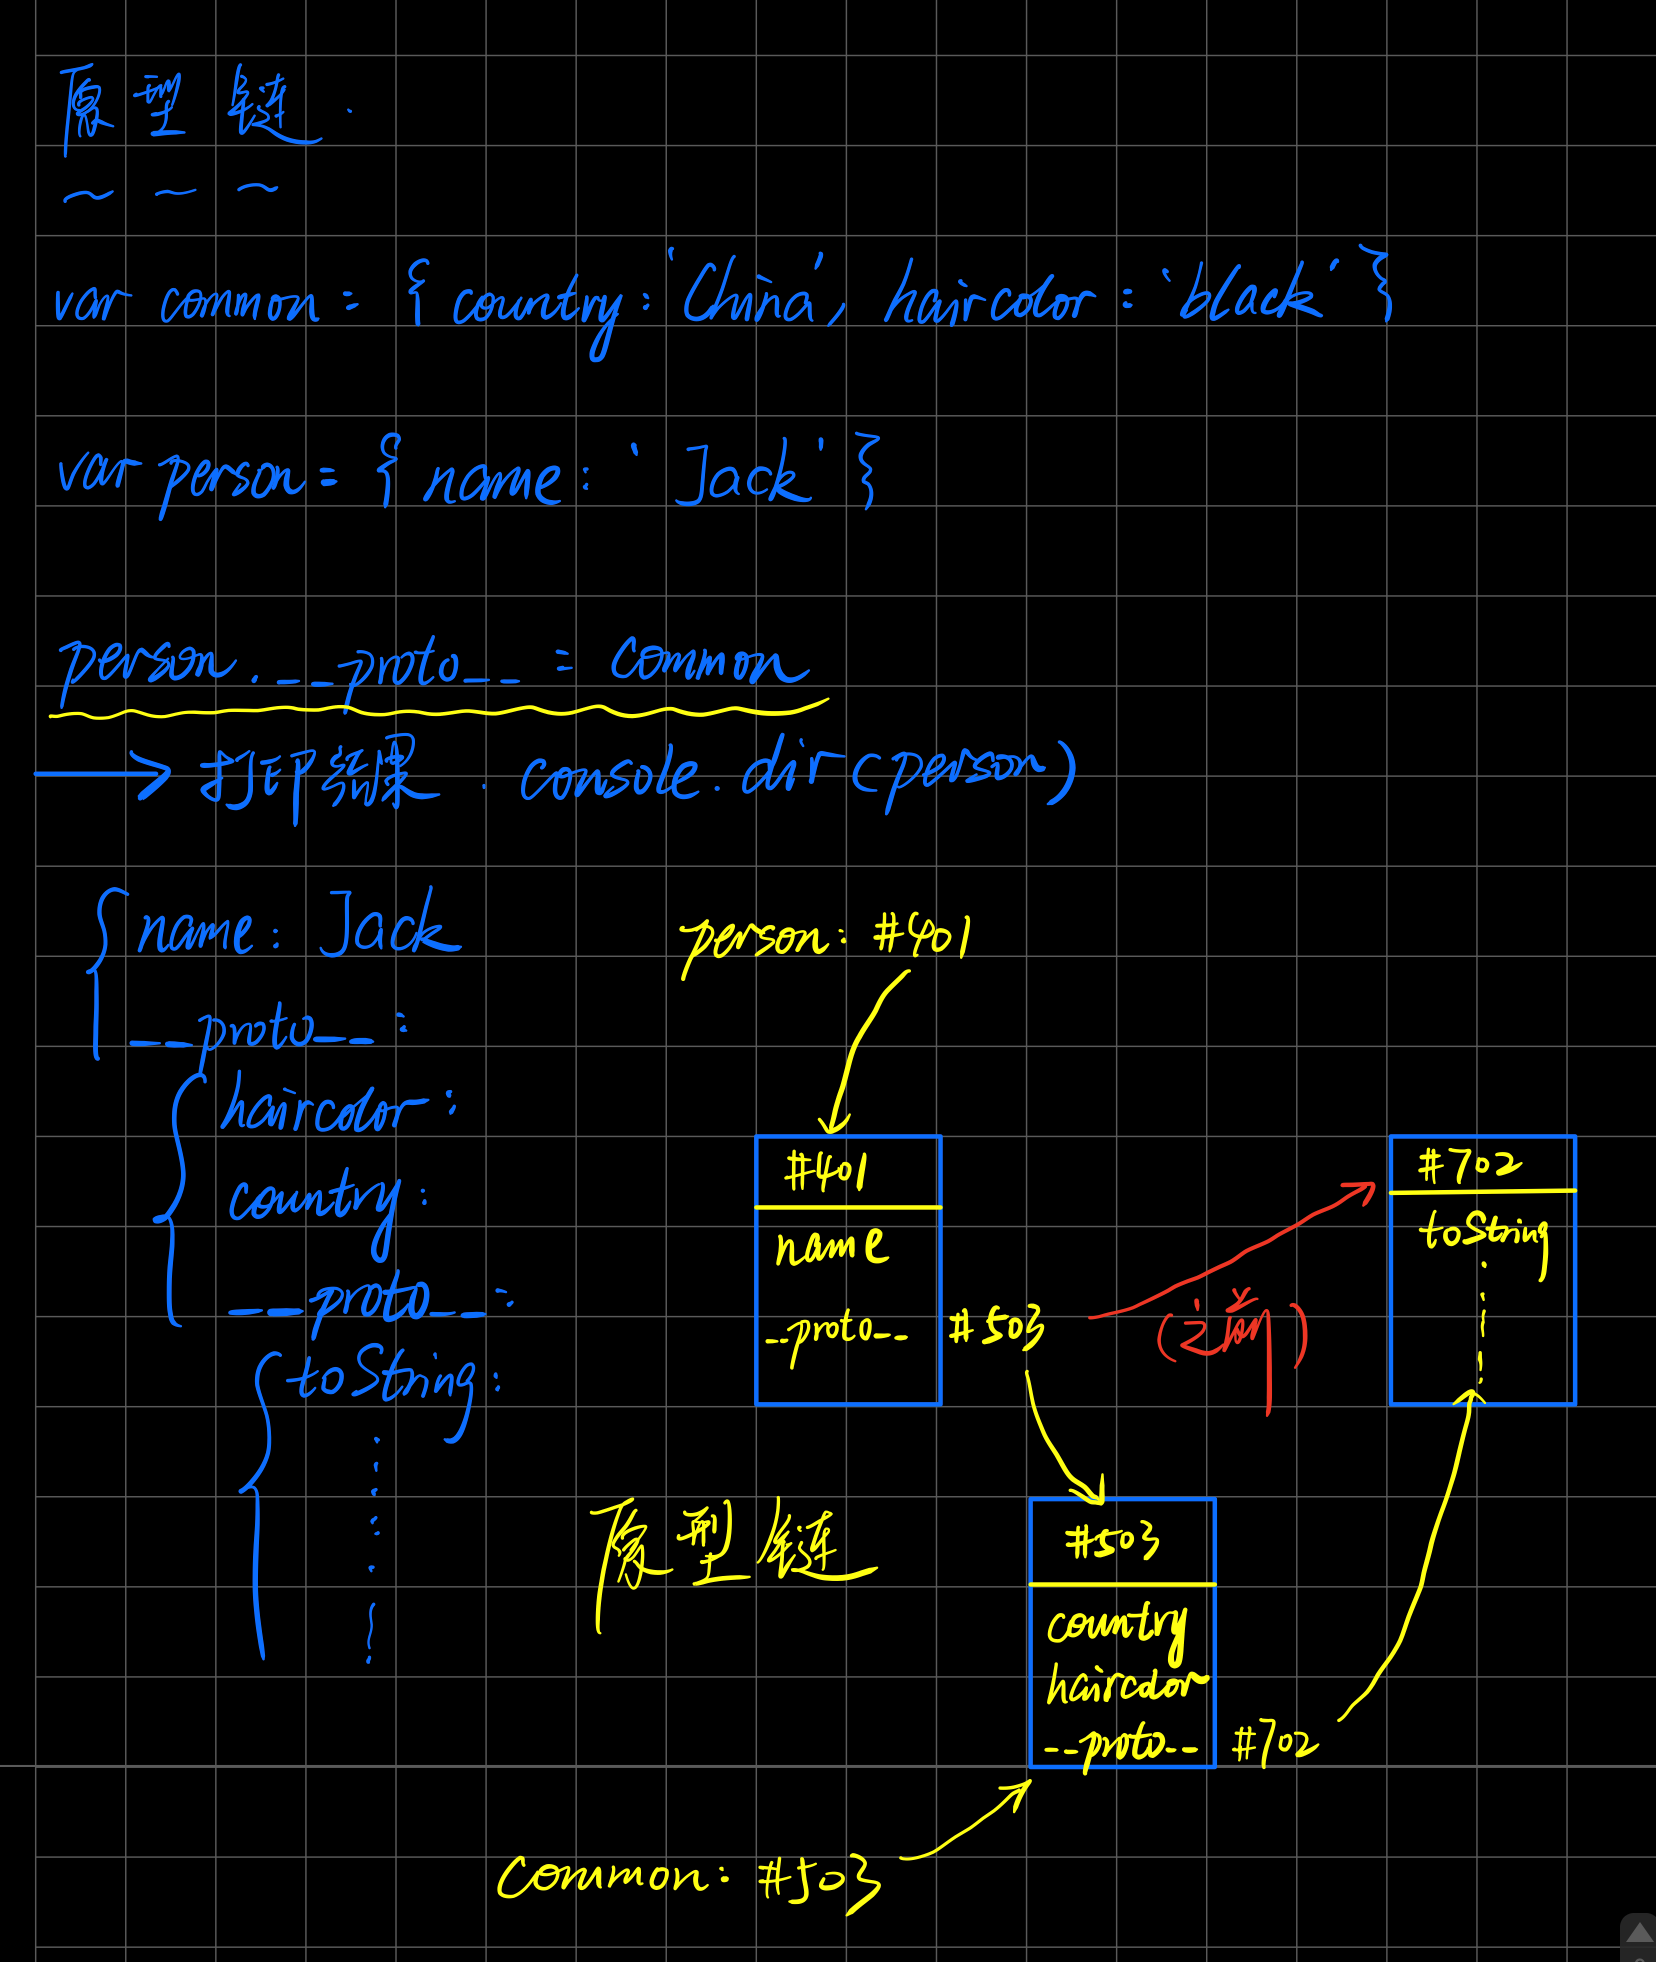 原型链.
var common = { country: 'China', haircolor: 'black' }
var person = { name: 'Jack' }
person.__proto__ = common
打印结果. console.dir(person)
name: Jack
__proto__:
haircolor:
country:
__proto__:
toString:
person: #401
#401
name
__proto__ #503
(之前)
#702
toString
原型链
#503
country
haircolor
__proto__ #702
Common: #503